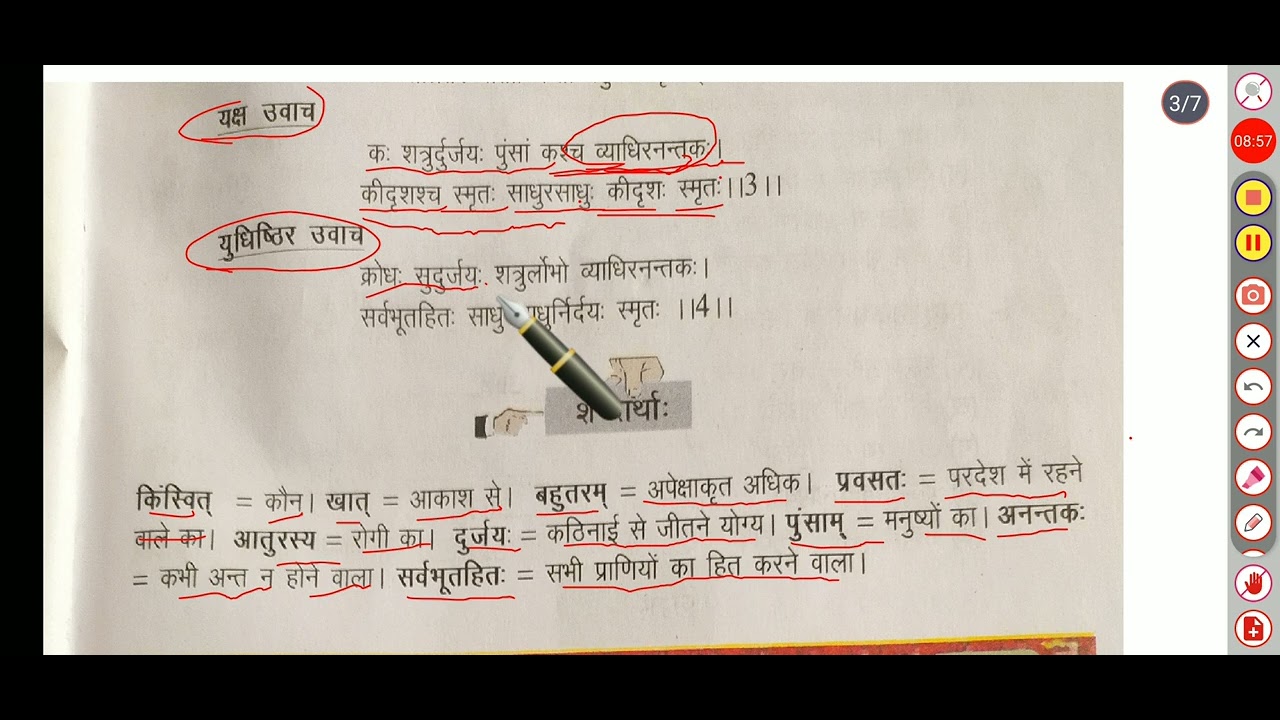 यक्ष उवाच
कः शत्रुर्दुर्जयः पुंसां कश्च व्याधिरनन्तकः।
कीदृशश्च स्मृतः साधुरसाधुः कीदृशः स्मृतः।।3।।
युधिष्ठिर उवाच
क्रोधः सुदुर्जयः शत्रुर्लोभो व्याधिरनन्तकः।
सर्वभूतहितः स्मृतः ।।4।।
किंस्वित् = कौन। खात् = आकाश से। बहुतरम् = अपेक्षाकृत अधिक। प्रवसतः = परदेश में रहने
वाले का। आतुरस्य = रोगी का। दुर्जयः = कठिनाई से जीतने योग्य। पुंसाम् = मनुष्यों का। अनन्तकः
= कभी अन्त न होने वाला। सर्वभूतहितः = सभी प्राणियों का हित करने वाला।
3/7
08:57